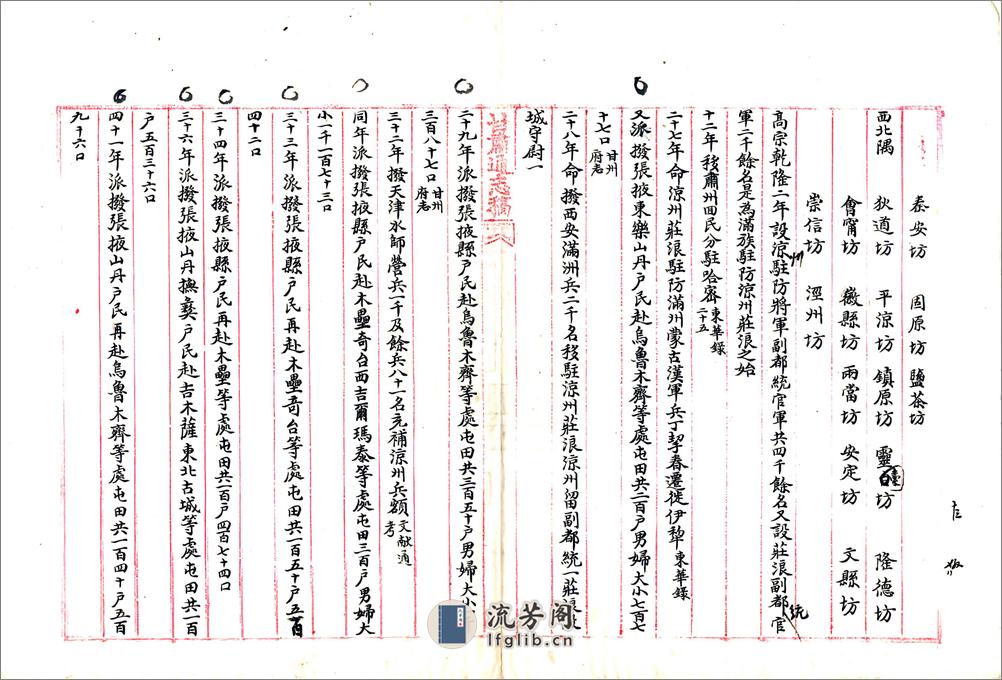 泰安坊 固原坊 鹽茶坊
西北隅 狄道坊 平涼坊 鎮原坊 靈臺坊 隆德坊
會甯坊 徽縣坊 兩當坊 安定坊 文縣坊
崇信坊 涇州坊
高宗乾隆二年設涼州駐防將軍副都統官軍共四千餘名又設莊浪副都統官
軍二千餘名是為滿族駐防涼州莊浪之始
十二年移肅州回民分駐哈密東華錄二十五
二十七年命涼州莊浪駐防滿州蒙古漢軍兵丁挈眷遷徙伊犁東華錄
又派撥張掖東樂山丹戶民赴烏魯木齊等處屯田共二百戶男婦大小七百七
十七口甘州府志
二十八年命撥西安滿洲兵二千名移駐涼州莊浪涼州留副都統一莊浪
城守尉一
甘肅通志稿
二十九年派撥張掖縣戶民赴烏魯木齊等處屯田共三百五十戶男婦大小
三百八十七口甘州府志
三十二年撥天津水師營兵一千及餘兵八十一名充補涼州兵額文献通考
同年派撥張掖縣戶民赴木壘奇台西吉爾瑪泰等處屯田三百戶男婦大
小一千一百七十三口
三十三年派撥張掖縣戶民再赴木壘奇台等處屯田共一百五十戶五百
四十二口
三十四年派撥張掖縣戶民再赴木壘等處屯田共一百戶四百七十四口
三十六年派撥張掖山丹撫彝戶民赴吉木薩東北古城等處屯田共一百
戶五百三十六口
四十一年派撥張掖山丹戶民再赴烏魯木齊等處屯田共一百四十戶五百
九十六口
流芳阁
lfglib.cn